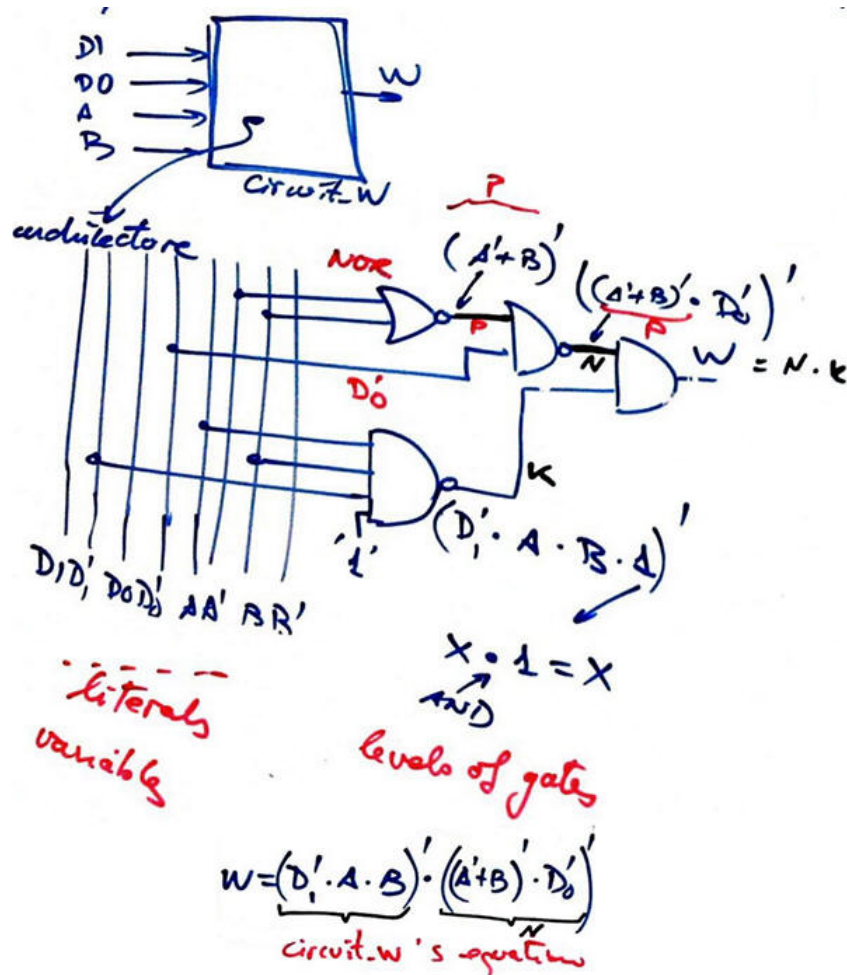 D1
D0
A
B
W
Circuit_W
P
NOR
(A'+B)'
((A'+B)'·D0')'
P
P
N
W = N·K
D0'
K
'1'
(D1'·A·B·1)'
D1 D1' D0 D0' A A' B B'
X·1=X
AND
literals
variables
levels of gates
W=(D1'·A·B)'·((A'+B)'·D0')'
N
circuit_w's equation